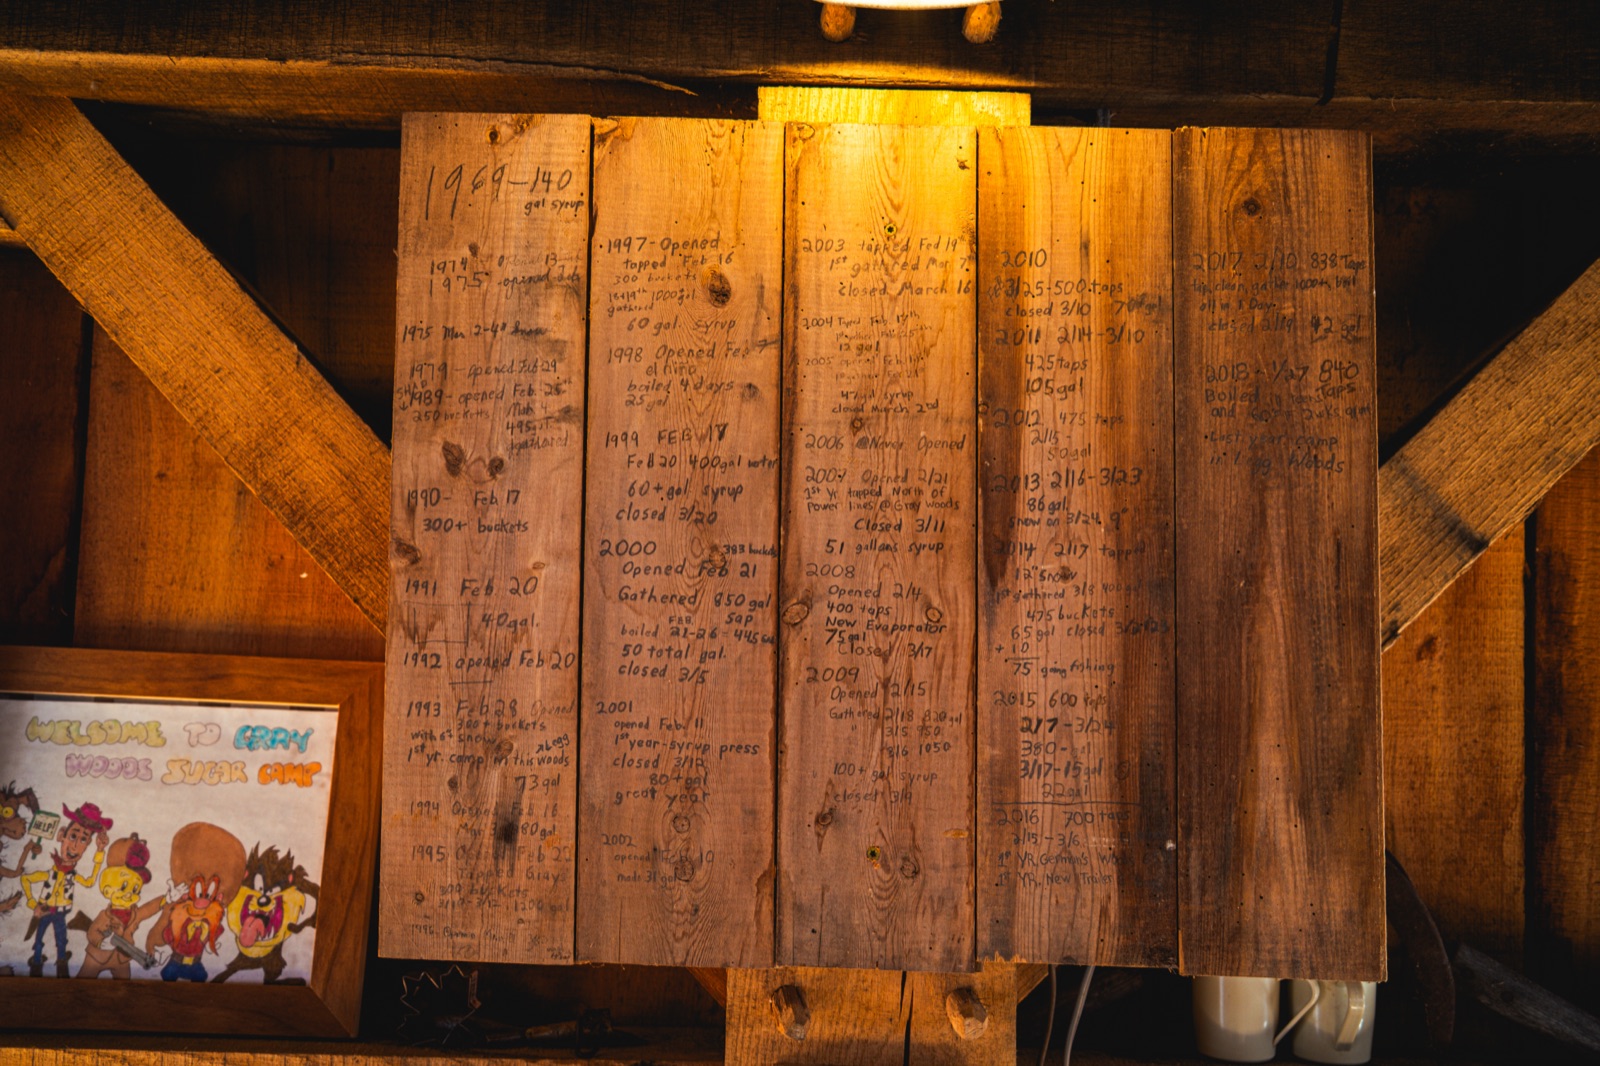 1969-140
gal syrup
1974
1975 opened Feb
1975 Mar 2-4"
1979 - opened Feb 29
1989 - opened Feb. 25th
250 buckets Mar 4
gathered
1990 - Feb 17
300+ buckets
1991 Feb 20
40gal.
1992 opened Feb 20
1993 Feb 28 Opened
300+ buckets
with 6" snow
1st yr. camp in this woods
73 gal
1994 Opened Feb 16
80 gal
1995 Opened Feb 22
Tapped Grays
300 buckets
1200 gal
1997 - Opened
tapped Feb 16
300 buckets
18+19th 1000 gal
gathered
60 gal. syrup
1998 Opened Feb 7
el niño
boiled 4 days
25 gal
1999 FEB 17
Feb 20 400gal water
60+ gal syrup
closed 3/20
2000 383 buckets
Opened Feb 21
Gathered 850 gal
sap
boiled FEB. 21-26 - 445 gal
50 total gal.
closed 3/5
2001
opened Feb. 11
1st year-syrup press
closed 3/12
80+ gal
great year
2002
opened Feb 10
made 31 gal
2003 tapped Feb 19
1st gathered Mar 7th
closed March 16
2004 Feb 17th
12 gal
2005 opened Feb
47 gal syrup
closed March 2nd
2006 Never Opened
2007 Opened 2/21
1st Yr tapped North of
Power lines @ Gray Woods
Closed 3/11
51 gallons syrup
2008
Opened 2/4
400 taps
New Evaporator
75gal
Closed 3/17
2009
Opened 2/15
Gathered 2/18 820 gal
3/5 950
3/6 1050
100+ gal syrup
closed 3/9
2010
2/25-500 taps
closed 3/10 70 gal
2011 2/14-3/10
425 taps
105 gal
2012 475 taps
2/15 -
50 gal
2013 2/16-3/23
86 gal.
snow on 3/24 9"
2014 2/17 tapped
12" snow
1st gathered 3/8 400 gal
475 buckets
65 gal closed
+ 10
75 going fishing
2015 600 taps
2/7 - 3/24
380 - gal
3/17 - 15gal
22gal
2016 700 taps
2/15 - 3/6
1st YR. German's Woods
1st YR. New Trailer
2017 2/10 838 Taps
tap, clean, gather 1000+, boil
all in 1 Day
closed 2/19 42 gal
2018 - 1/27 840
Taps
Boiled in
and
Last year camp
in Woods
WELSOME TO GRAY
WOODS SUGAR CAMP
HELP!